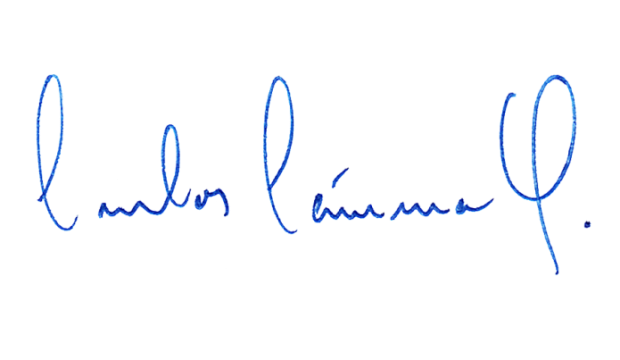 Carlos Cámara